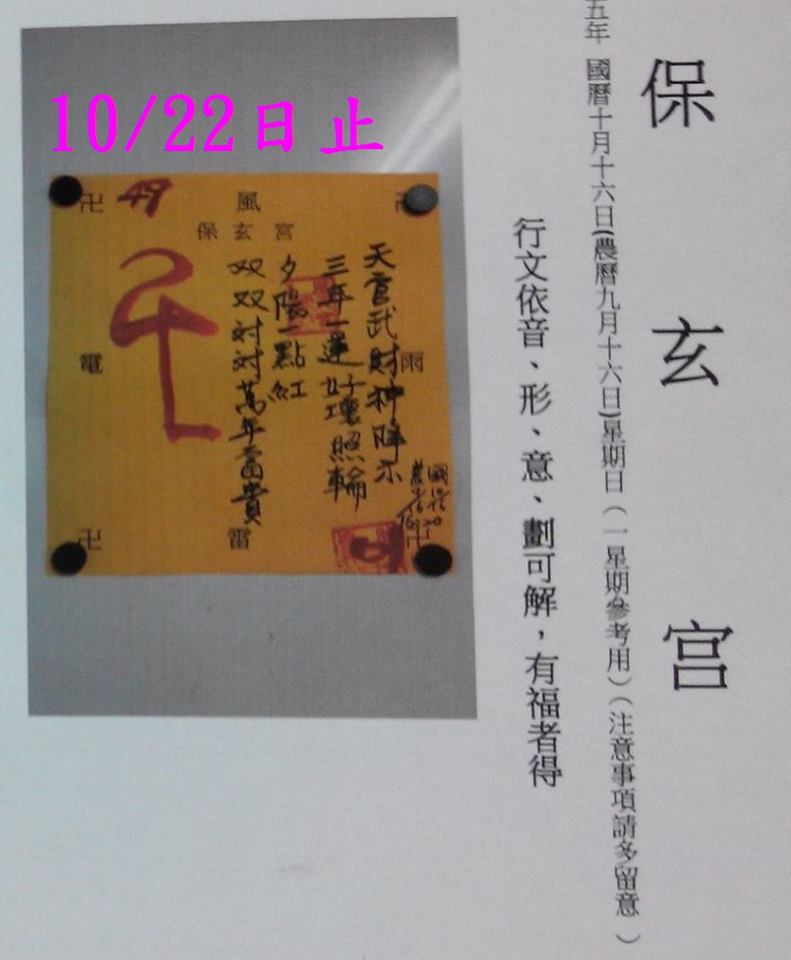 保玄宮
五年 國曆十月十六日(農曆九月十六日)星期日（一星期參考用）（注意事項請多留意）
行文依音、形、意、劃可解，有福者得
10/22日止
卍 49 風 卍
保玄宮
天官武財神降示
三年一運好壞照輪
夕陽一點紅
双双对对萬年富貴
電 雨
卍 雷 卍